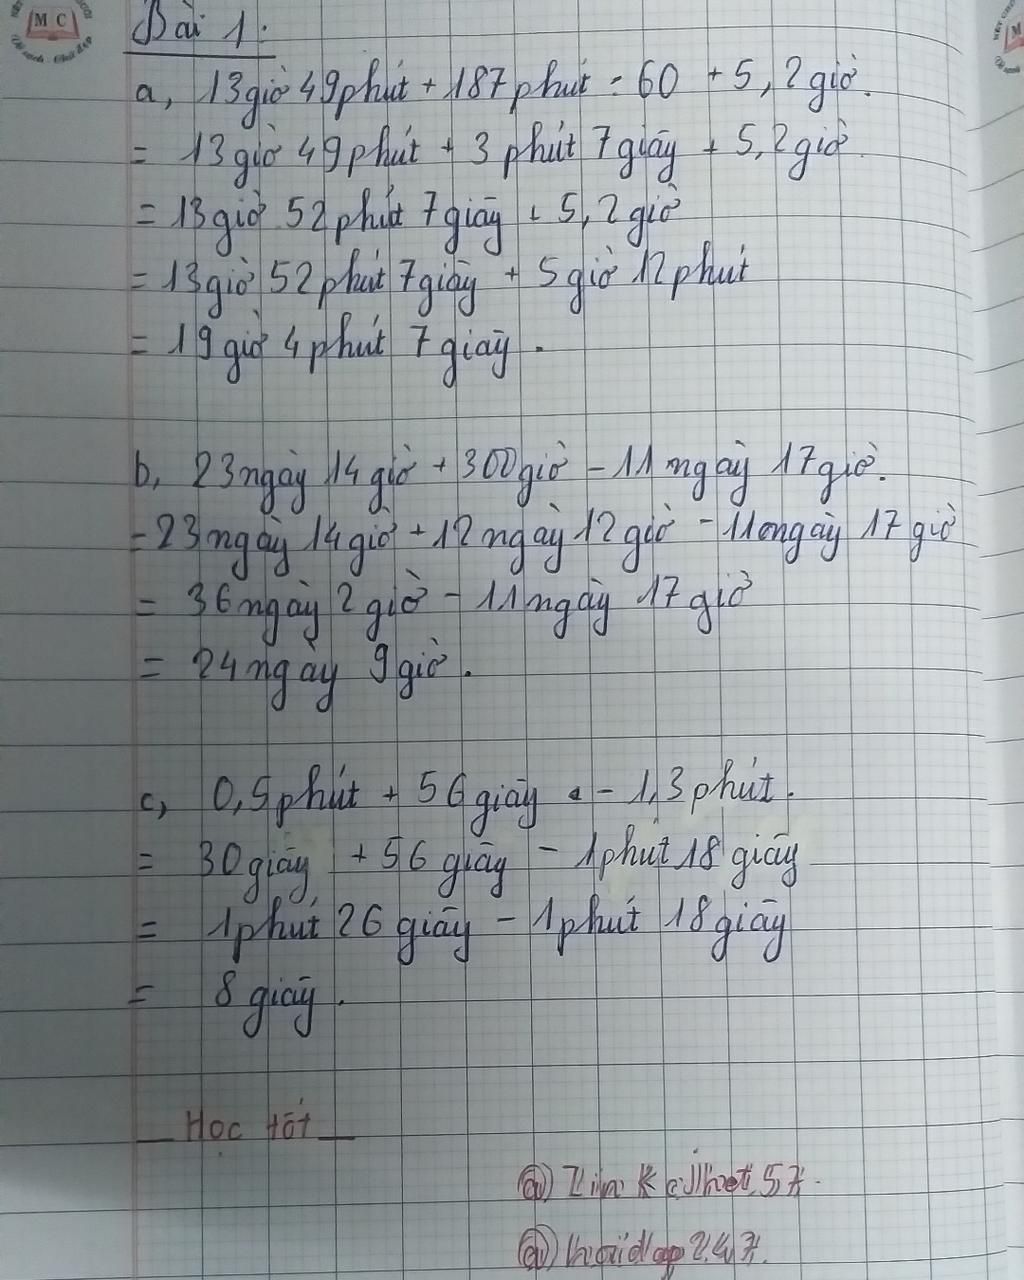 M C
Bài 1:
a, 13giờ 49phút + 187phút : 60 + 5,2giờ.
= 13giờ 49phút + 3 phút 7giây + 5,2giờ
= 13giờ 52phút 7giây + 5,2giờ
= 13giờ 52phút 7giây + 5giờ 12phút
= 19giờ 4phút 7giây.
b, 23ngày 14giờ + 300giờ - 11ngày 17giờ.
= 23ngày 14giờ + 12ngày 12giờ - 11ngày 17giờ
= 36ngày 2giờ - 11ngày 17giờ
= 24ngày 9giờ.
c, 0,5phút + 56giây - 1,3phút.
= 30giây + 56giây - 1phút 18giây
= 1phút 26giây - 1phút 18giây
= 8giây.
Học tốt